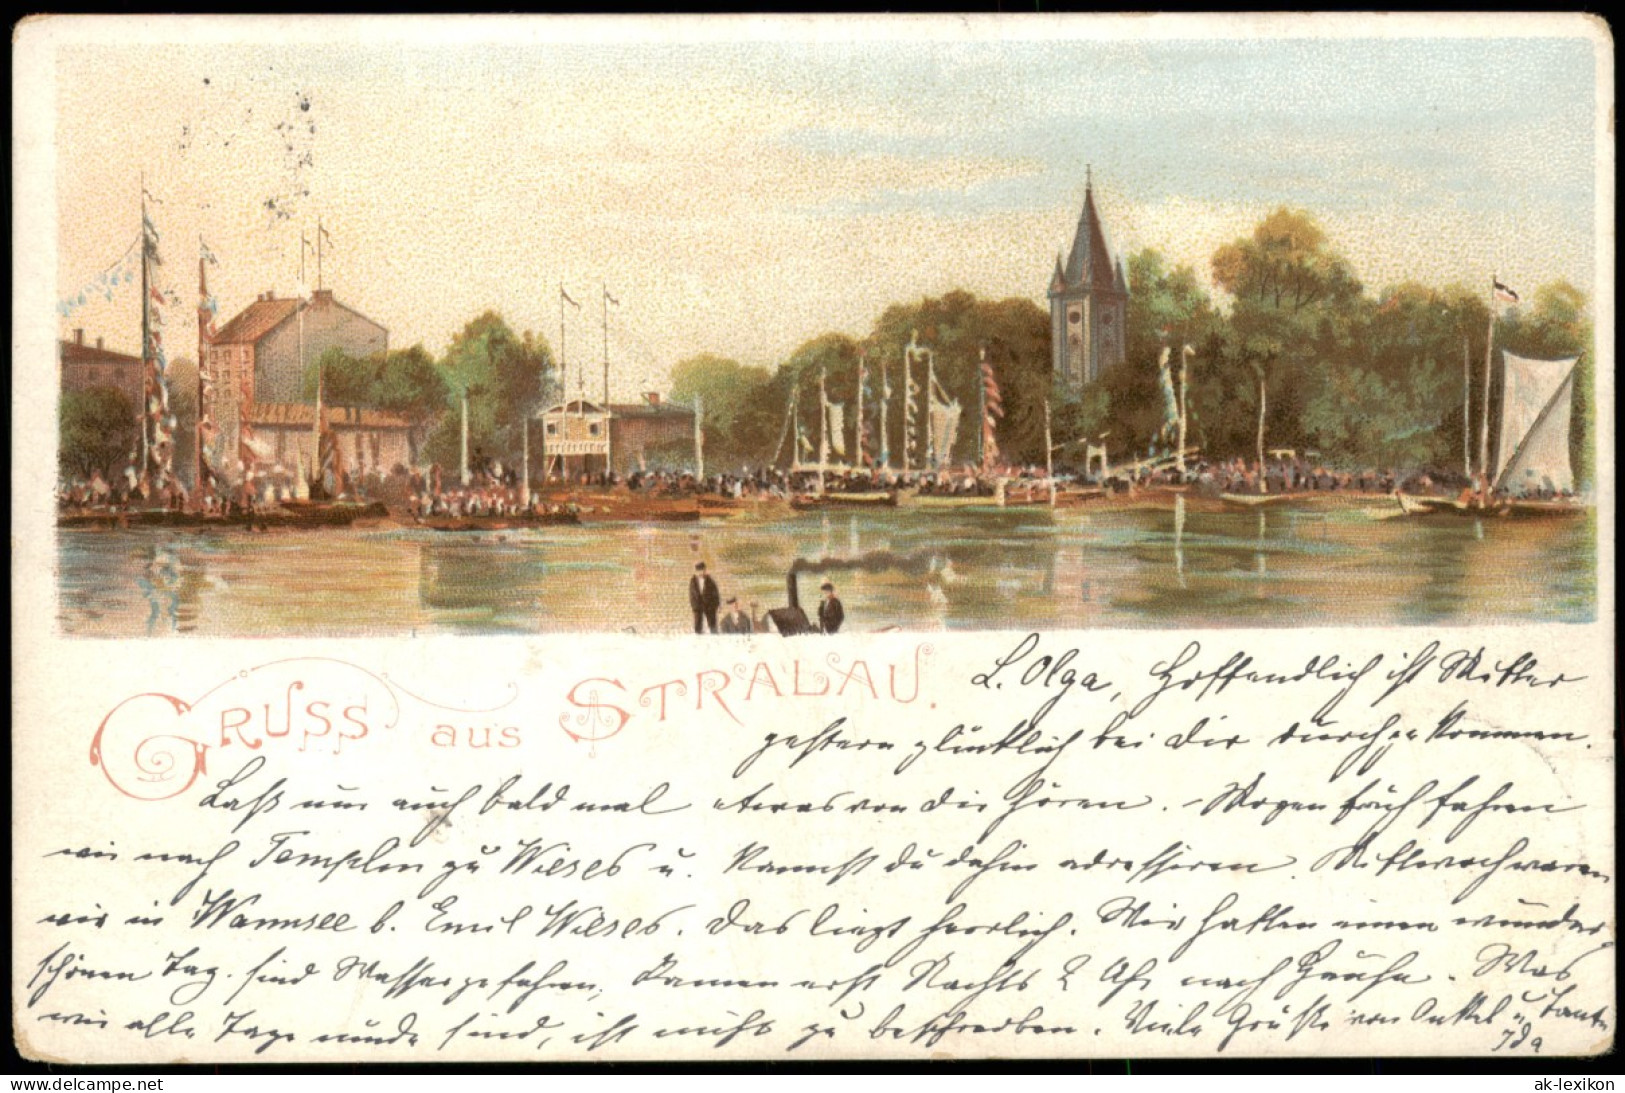 GRUSS aus STRALAU.
L. Olga, Hoffendlich ist Mutter
gestern glücklich bei Dir durchgekommen.
Laß uns auch bald mal etwas von Dir hören. - Morgen früh fahren
wir nach Templin zu Wieses u. kannst du dahin adressieren. Mittwoch waren
wir in Wannsee b. Emil Wieses. Das liegt herrlich. Wir hatten einen wunder
schönen Tag. sind Wasser gefahren, kamen erst Nachts 2 Uhr nach Hause. Was
wir alle Tage müde sind, ist nicht zu beschreiben. Viele Grüße von Onkel u. Tante
Ida
Delcampe.net
ak-lexikon